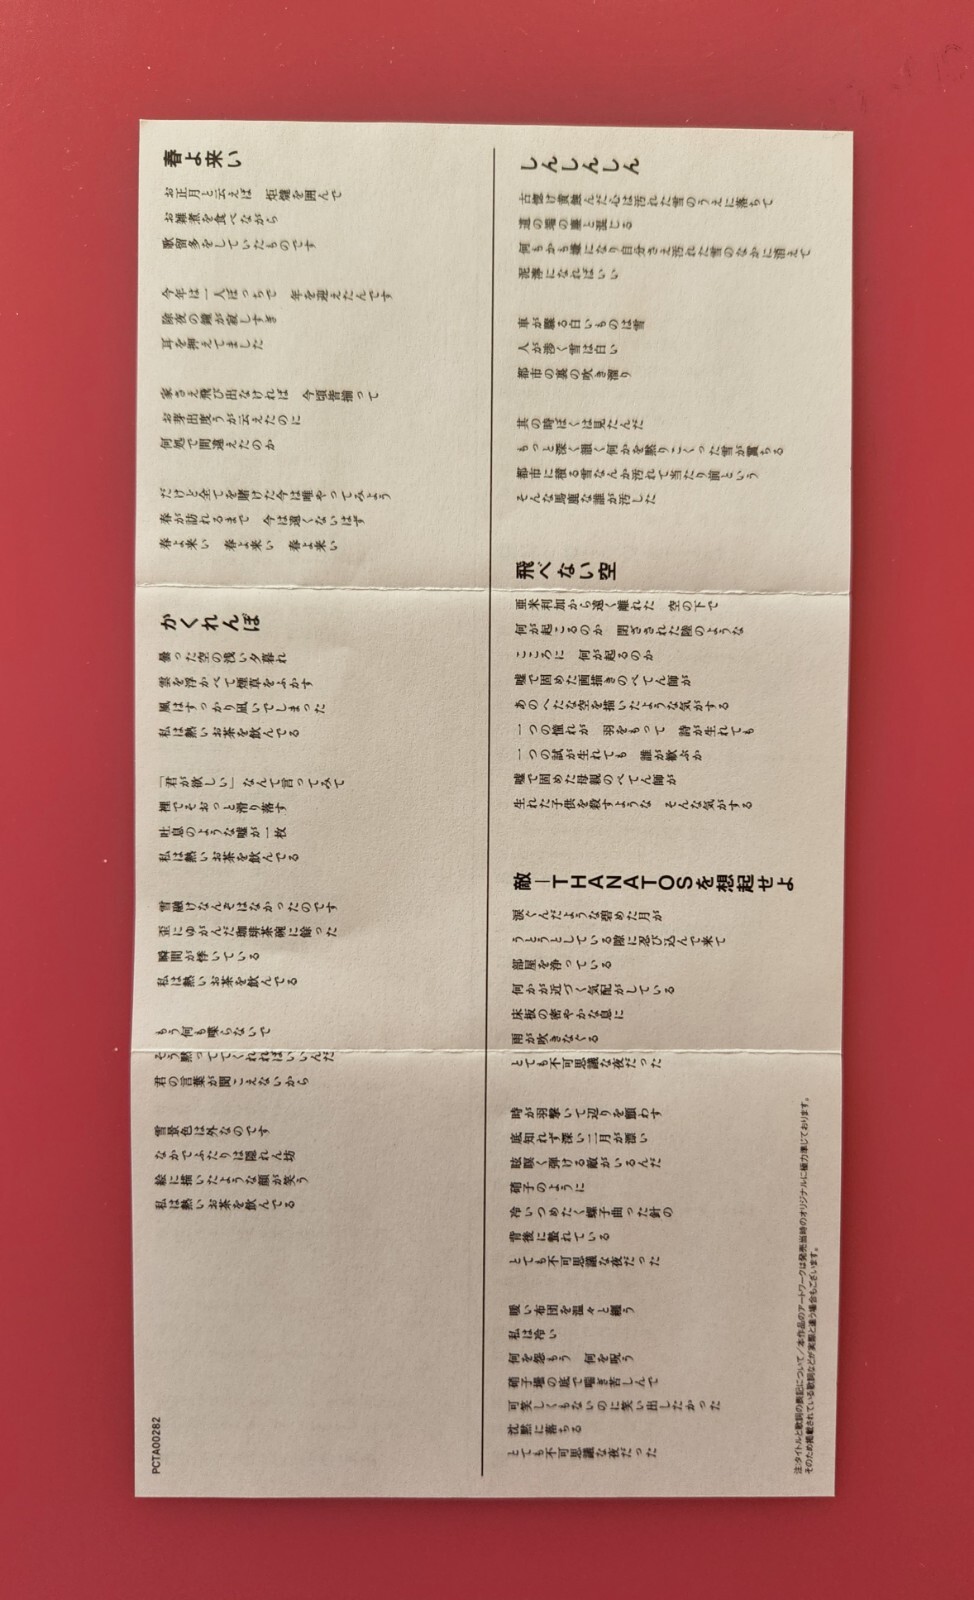 春よ来い
お正月と云えば　炬燵を囲んで
お雑煮を食べながら
歌留多をしていたものです
今年は一人ぼっちで　年を迎えたんです
除夜の鐘が寂しすぎ
耳を押えてました
家さえ飛び出なければ　今頃皆揃って
お芽出度うが云えたのに
何処で間違えたのか
だけど全てを賭けた今は唯やってみよう
春が訪れるまで　今は遠くないはず
春よ来い　春よ来い　春よ来い
かくれんぼ
曇った空の浅い夕暮れ
雲を浮かべて煙草をふかす
風はすっかり凪いでしまった
私は熱いお茶を飲んでる
「君が欲しい」なんて言ってみて
裡でそおっと滑り落す
吐息のような嘘が一枚
私は熱いお茶を飲んでる
雪融けなんぞはなかったのです
歪にゆがんだ珈琲茶碗に餘った
瞬間が悸いている
私は熱いお茶を飲んでる
もう何も喋らないで
そう黙っててくれればいいんだ
君の言葉が聞こえないから
雪景色は外なのです
なかでふたりは隠れん坊
絵に描いたような顔が笑う
私は熱いお茶を飲んでる
PCTA00282
しんしんしん
古惚け黄蝕んだ心は汚れた雪のうえに落ちて
道の端の塵と混じる
何もかも嫌になり自分さえ汚れた雪のなかに消えて
泥濘になればいい
車が轢る白いものは雪
人が渉く雪は白い
都市の裏の吹き溜り
其の時ぼくは見たんだ
もっと深く韻く何かを黙りこくった雪が翼ちる
都市に積る雪なんか汚れて当たり前という
そんな馬鹿な誰が汚した
飛べない空
亜米利加から遠く離れた　空の下で
何が起こるのか　閉ざされた陸のような
こころに　何が起るのか
嘘で固めた画描きのぺてん師が
あのへたな空を描いたような気がする
一つの憧れが　羽をもって　詩が生れても
一つの試が生れても　誰が歓ぶか
嘘で固めた母親のぺてん師が
生れた子供を殺すような　そんな気がする
敵—THANATOSを想起せよ
涙ぐんだような碧めた月が
うとうとしている隙に忍び込んで来て
部屋を浄っている
何かが近づく気配がしている
床板の密やかな息に
雨が吹きなぐる
とても不可思議な夜だった
時が羽撃いて辺りを顫わす
底知れず深い二月が漂い
眩瞑く弾ける敵がいるんだ
硝子のように
冷いつめたく螺子曲った針の
背後に蟄れている
とても不可思議な夜だった
暖い布団を温々と纏う
私は冷い
何を怨もう　何を呪う
硝子壜の底で喘ぎ苦しんで
可笑しくもないのに笑い出したかった
沈黙に落ちる
とても不可思議な夜だった
注：タイトルと歌詞の表記について／本作品のアートワークは発売当時のオリジナルに極力準じております。
そのため掲載されている歌詞などが実際と違う場合もございます。